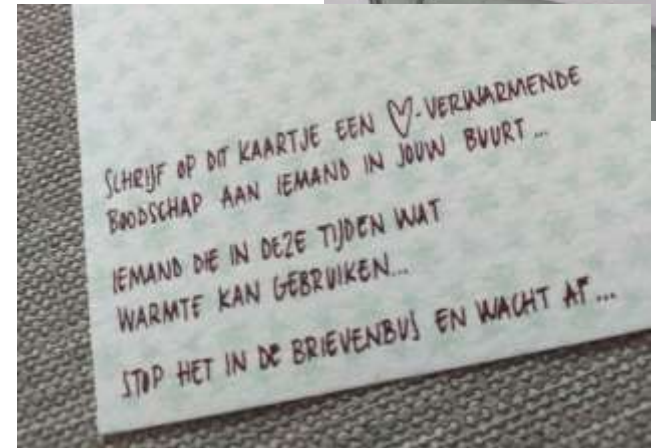 SCHRIJF OP DIT KAARTJE EEN ♡-VERWARMENDE
BOODSCHAP AAN IEMAND IN JOUW BUURT...
IEMAND DIE IN DEZE TIJDEN WAT
WARMTE KAN GEBRUIKEN...
STOP HET IN DE BRIEVENBUS EN WACHT AF...